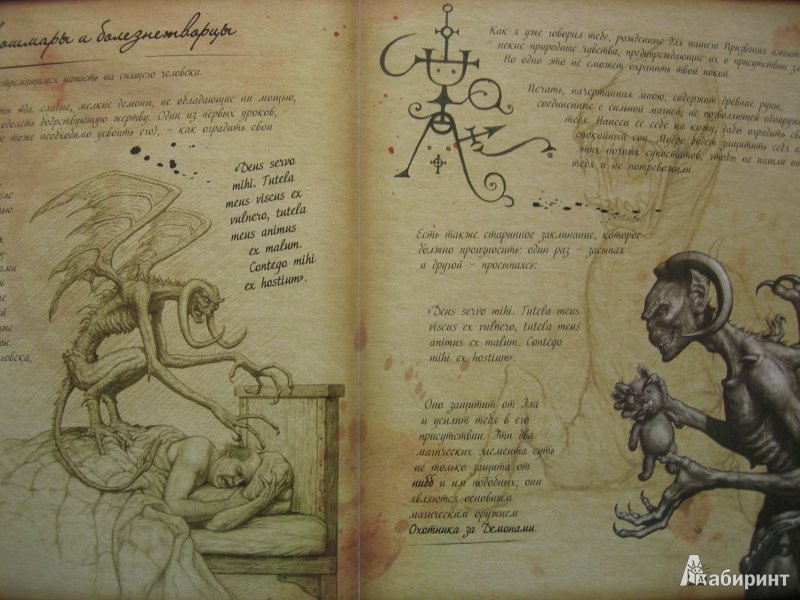 ошмары и болезнетворцы
стремящимся напасть на спящего человека.
ты Ада, слабые, мелкие демоны, не обладающие ни мощью,
одолеть бодрствующую жертву. Один из первых уроков,
с тоже необходимо усвоить его), – как оградить свои
«Deus servo
mihi. Tutela
meus viscus ex
vulnero, tutela
meus animus
ex malum.
Contego mihi
ex hostium».
Как я уже говорил тебе, рожденные для нашего Призвания имеют
некие природные чувства, предупреждающие их о присутствии
Но одно это не сможет охранить твой покой.
Печать, начертанная мною, содержит древние руны,
соединенные с сильной магией, не позволяющей
тебя. Нанеси ее себе на кожу, дабы оградить
спокойный сон. Мудро будет защитить себя
этих ночных супостатов, чтобы не нашли
тебя и не потревожили.
Есть также старинное заклинание, которое
должно произносить: один раз – засыпая
и другой – просыпаясь:
«Deus servo mihi. Tutela meus
viscus ex vulnero, tutela meus
animus ex malum. Contego
mihi ex hostium».
Оно защитит от Зла
и усилит тебя в его
присутствии. Эти два
магических элемента суть
не только защита от
нибб и им подобных; они
являются основным
магическим оружием
Охотника за Демонами.
Лабиринт